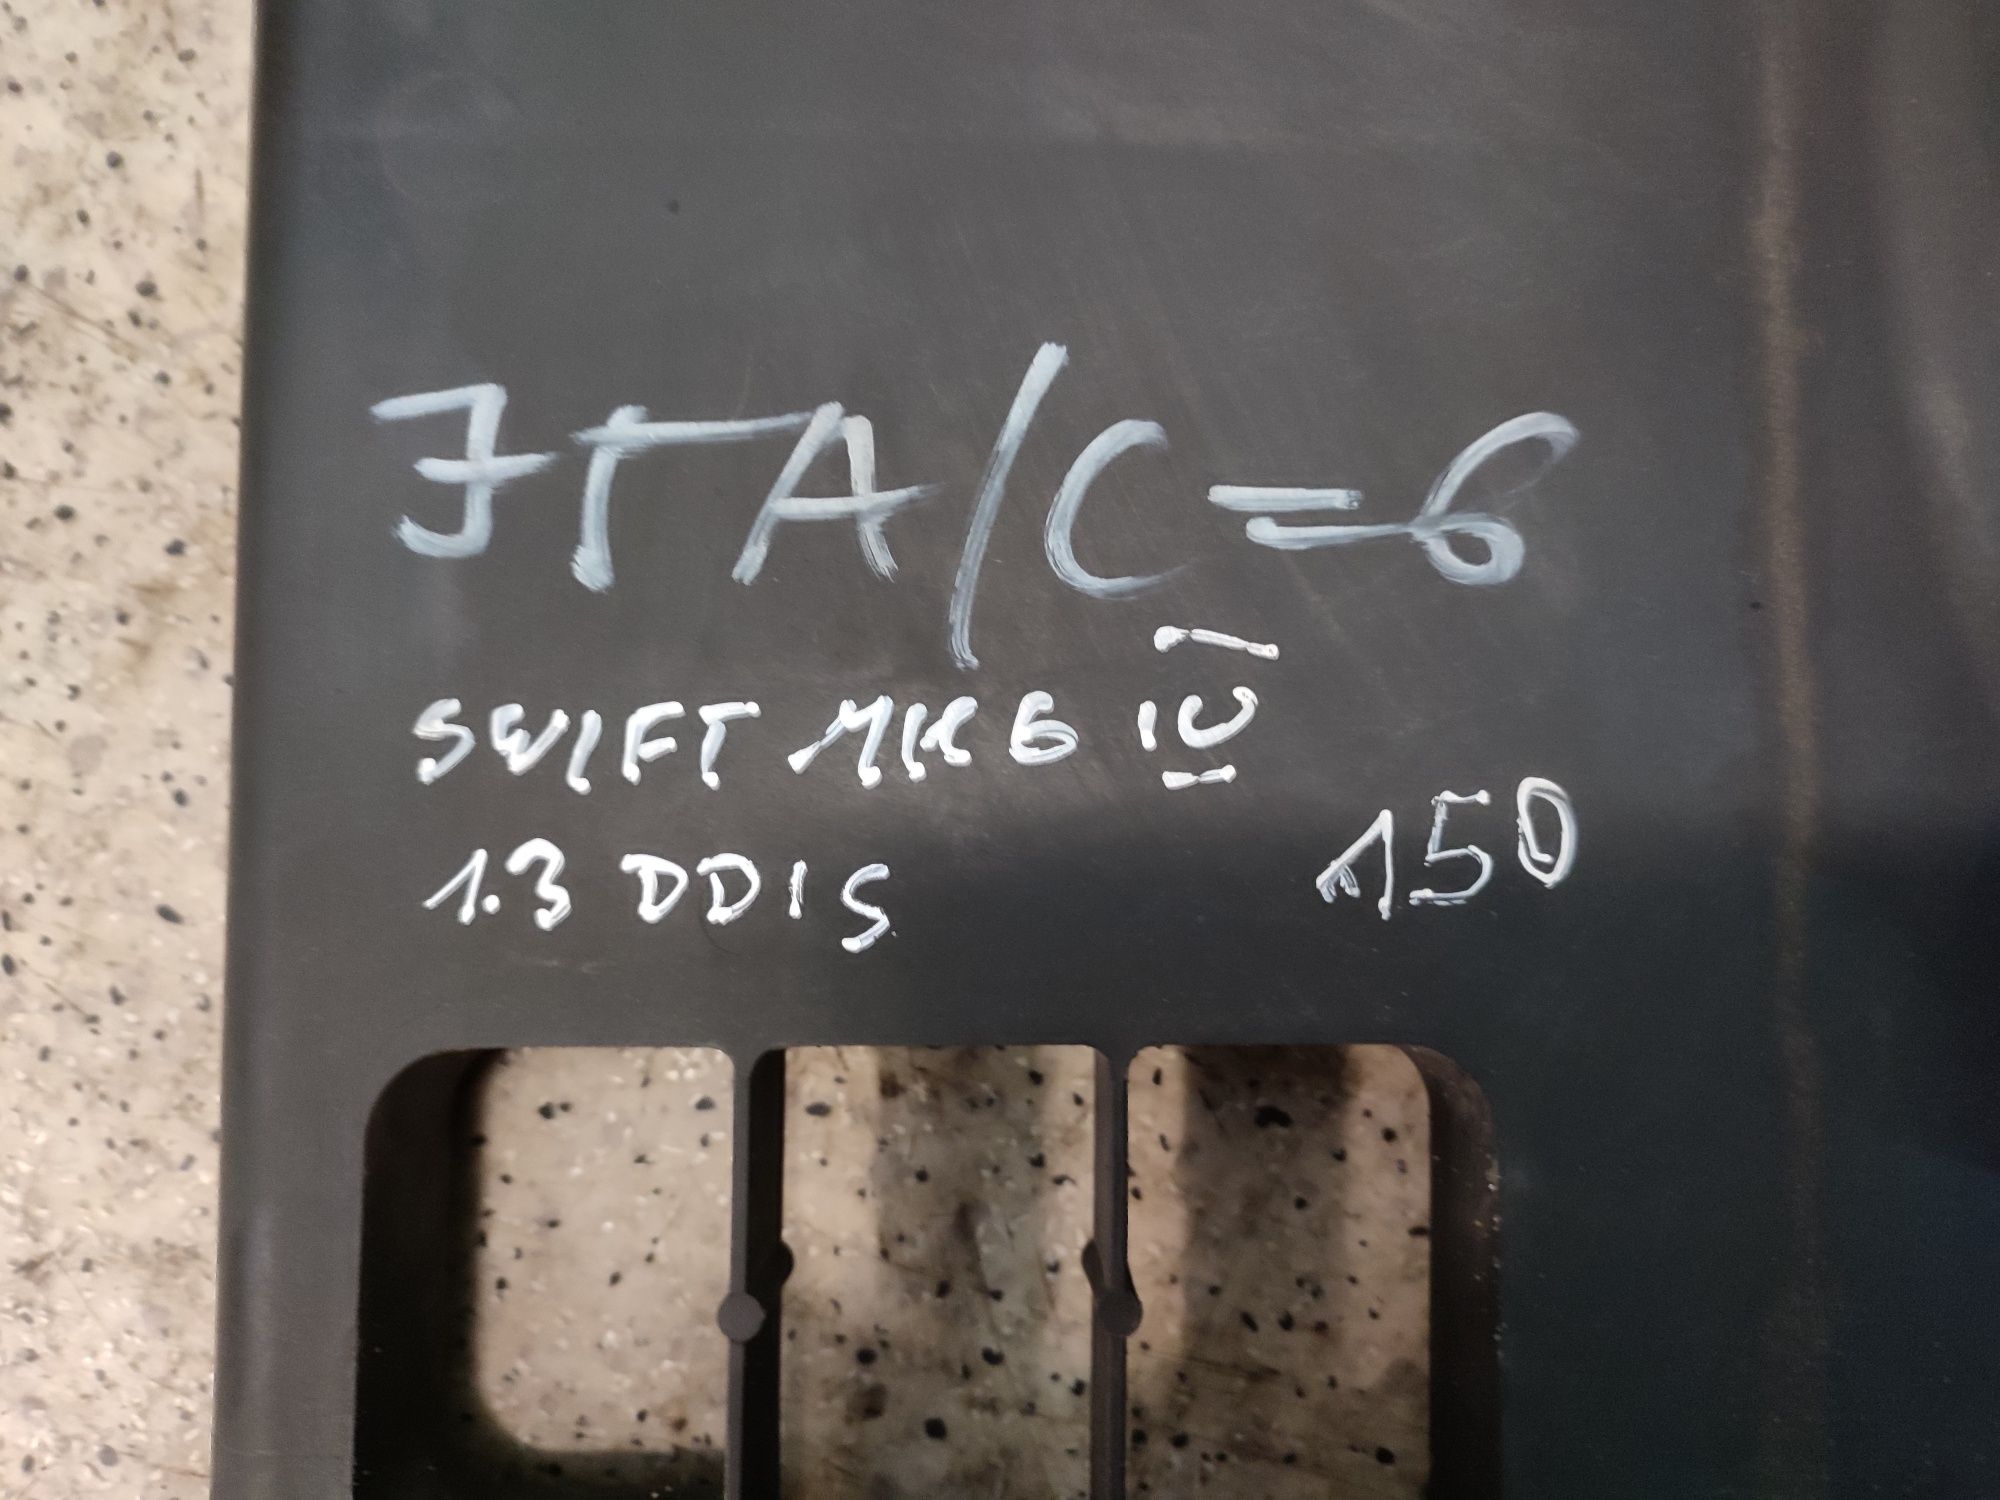 JTA/C=6
SWIFT MK6 IV
1.3 DDIS 150